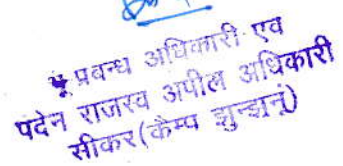 भू प्रबन्ध अधिकारी एव
पदेन राजस्व अपील अधिकारी
सीकर(कैम्प झुन्झनूं)